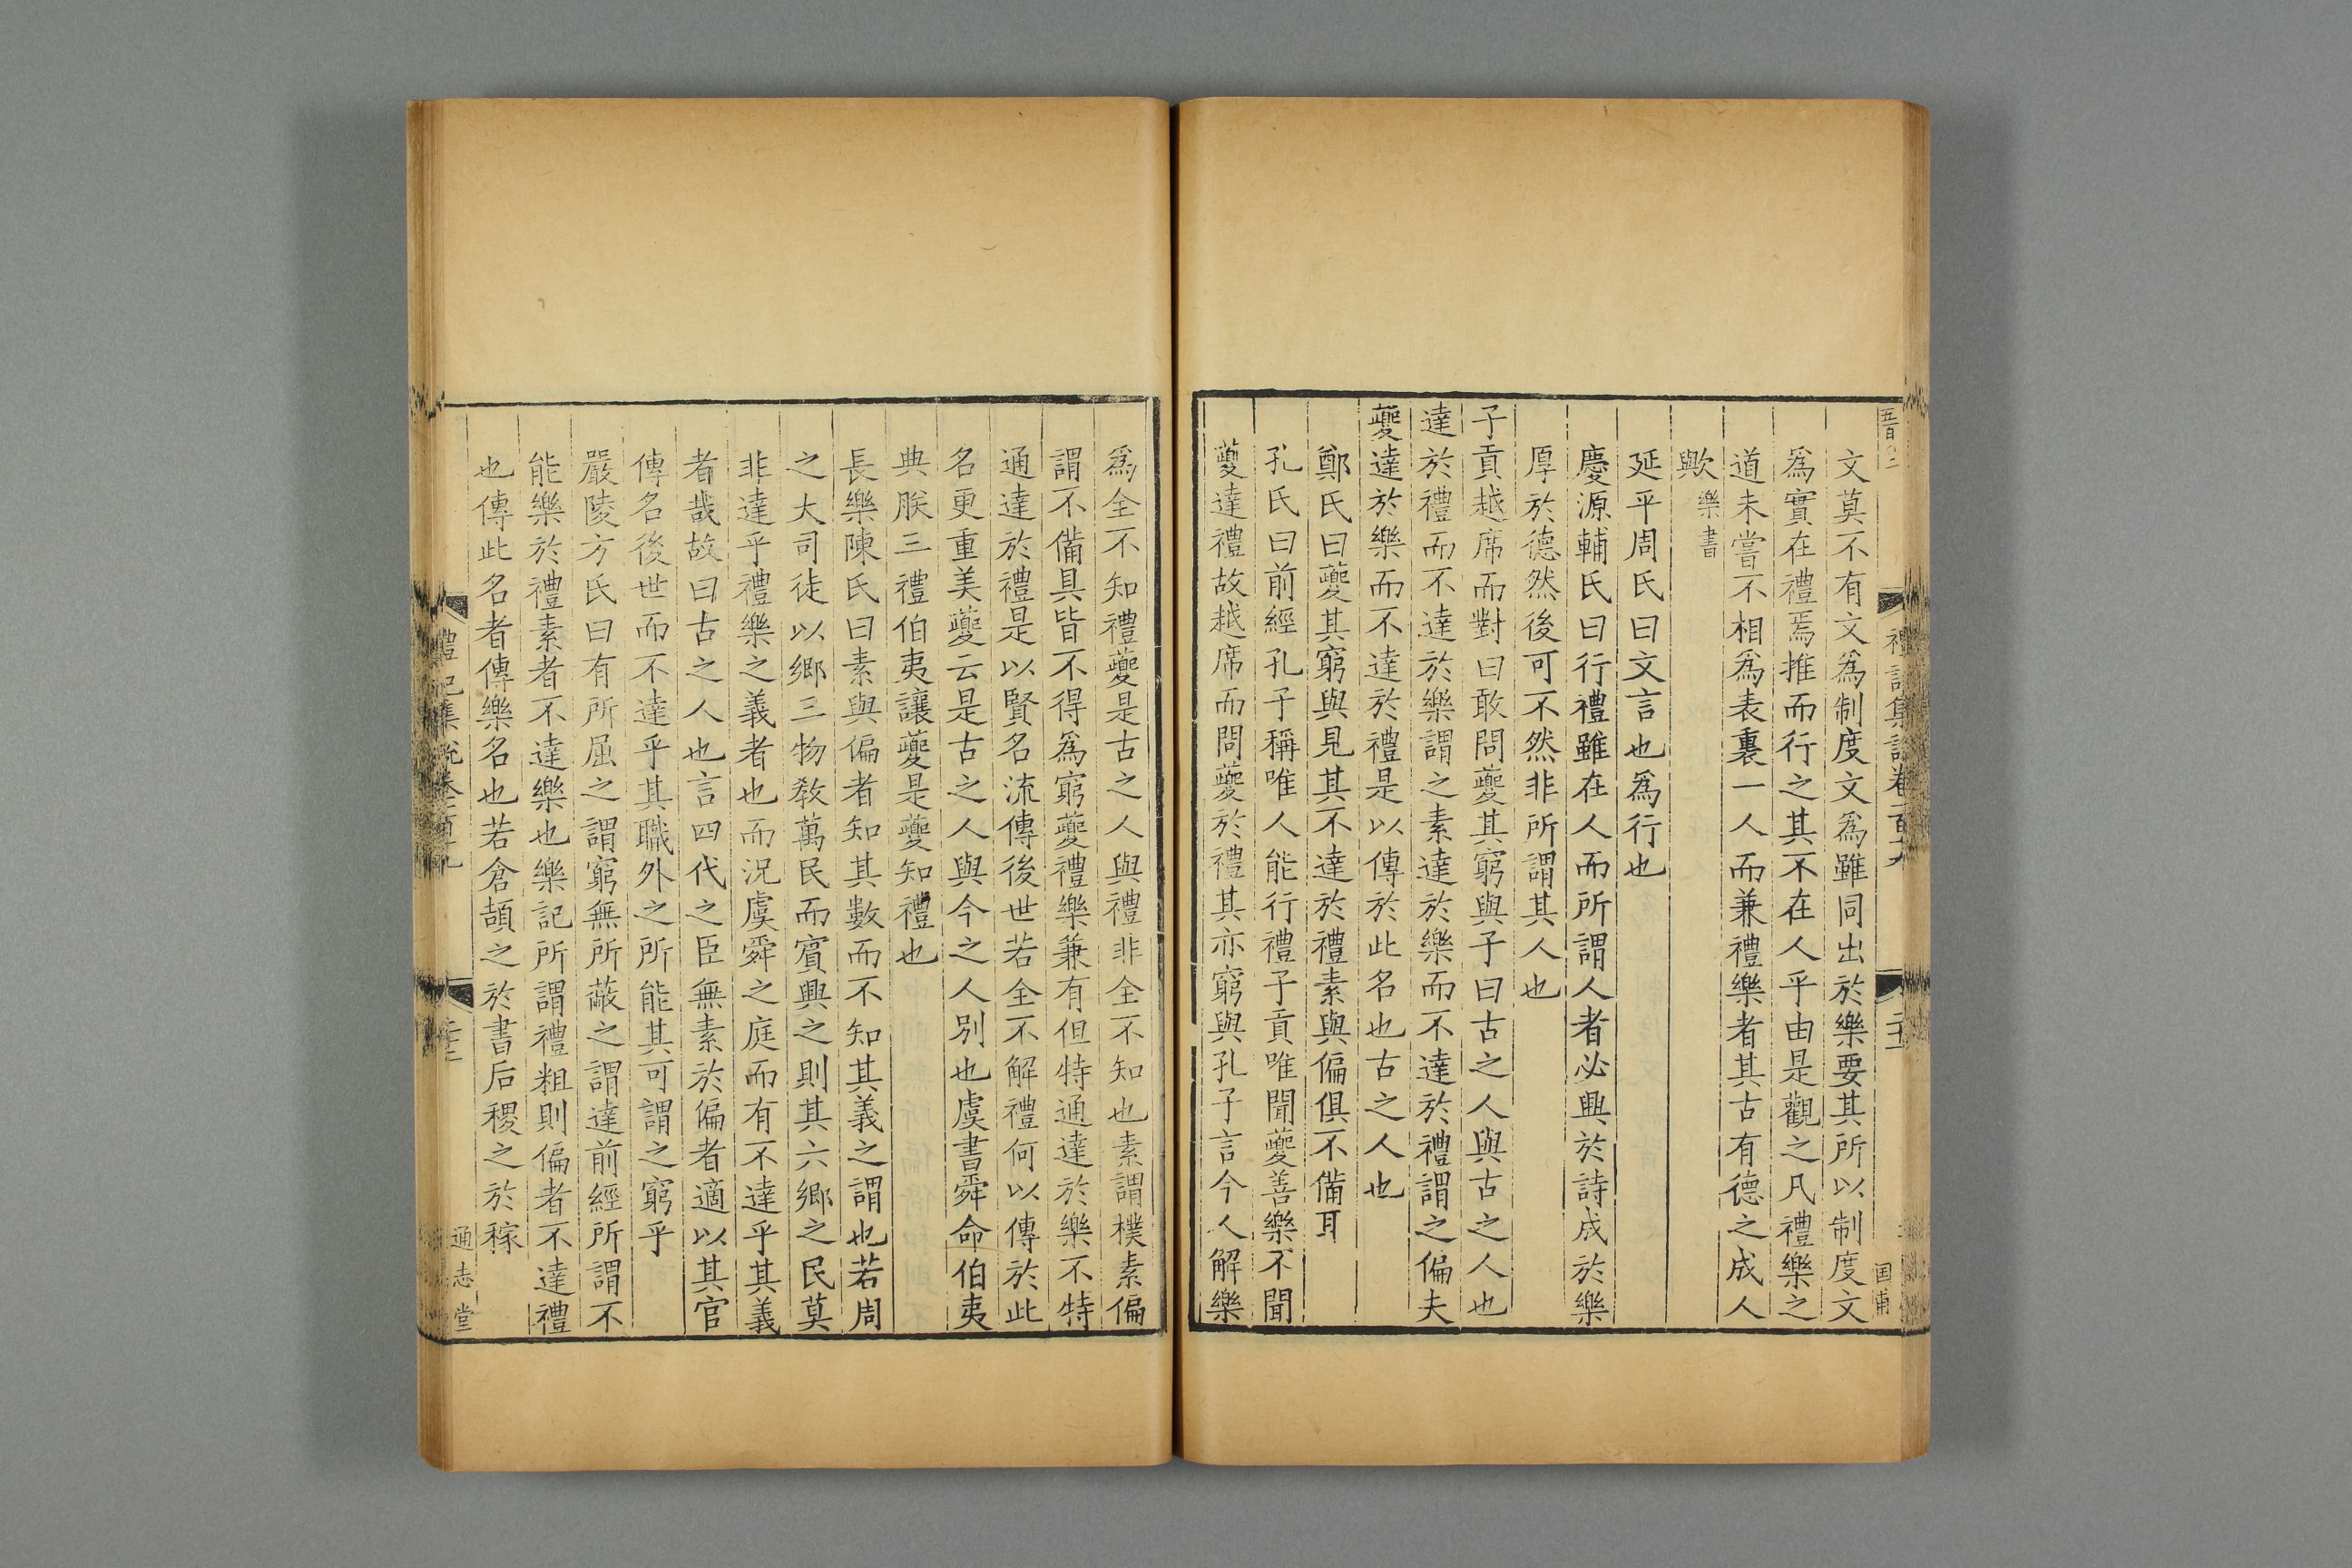 文莫不有文爲制度文爲雖同出於樂要其所以制度文
爲實在禮焉推而行之其不在人乎由是觀之凡禮樂之
道未嘗不相爲表裏一人而兼禮樂者其古有德之成人
歟樂書
延平周氏曰文言也爲行也
慶源輔氏曰行禮雖在人而所謂人者必興於詩成於樂
厚於德然後可不然非所謂其人也
子貢越席而對曰敢問夔其窮與子曰古之人與古之人也
達於禮而不達於樂謂之素達於樂而不達於禮謂之偏夫
夔達於樂而不達於禮是以傳於此名也古之人也
鄭氏曰夔其窮與見其不達於禮素與偏俱不備耳
孔氏曰前經孔子稱唯人能行禮子貢唯聞夔善樂不聞
夔達禮故越席而問夔於禮其亦窮與孔子言今人解樂
爲全不知禮夔是古之人與禮非全不知也素謂樸素偏
謂不備具皆不得爲窮夔禮樂兼有但特通達於樂不特
通達於禮是以賢名流傳後世若全不解禮何以傳於此
名更重美夔云是古之人與今之人別也虞書舜命伯夷
典朕三禮伯夷讓夔是夔知禮也
長樂陳氏曰素與偏者知其數而不知其義之謂也若周
之大司徒以鄉三物敎萬民而賓興之則其六鄉之民莫
非達乎禮樂之義者也而況虞舜之庭而有不達乎其義
者哉故曰古之人也言四代之臣無素於偏者適以其官
傳名後世而不達乎其職外之所能其可謂之窮乎
嚴陵方氏曰有所屈之謂窮無所蔽之謂達前經所謂不
能樂於禮素者不達樂也樂記所謂禮粗則偏者不達禮
也傳此名者傳樂名也若倉頡之於書后稷之於稼
禮記集說卷一百十九
通志堂